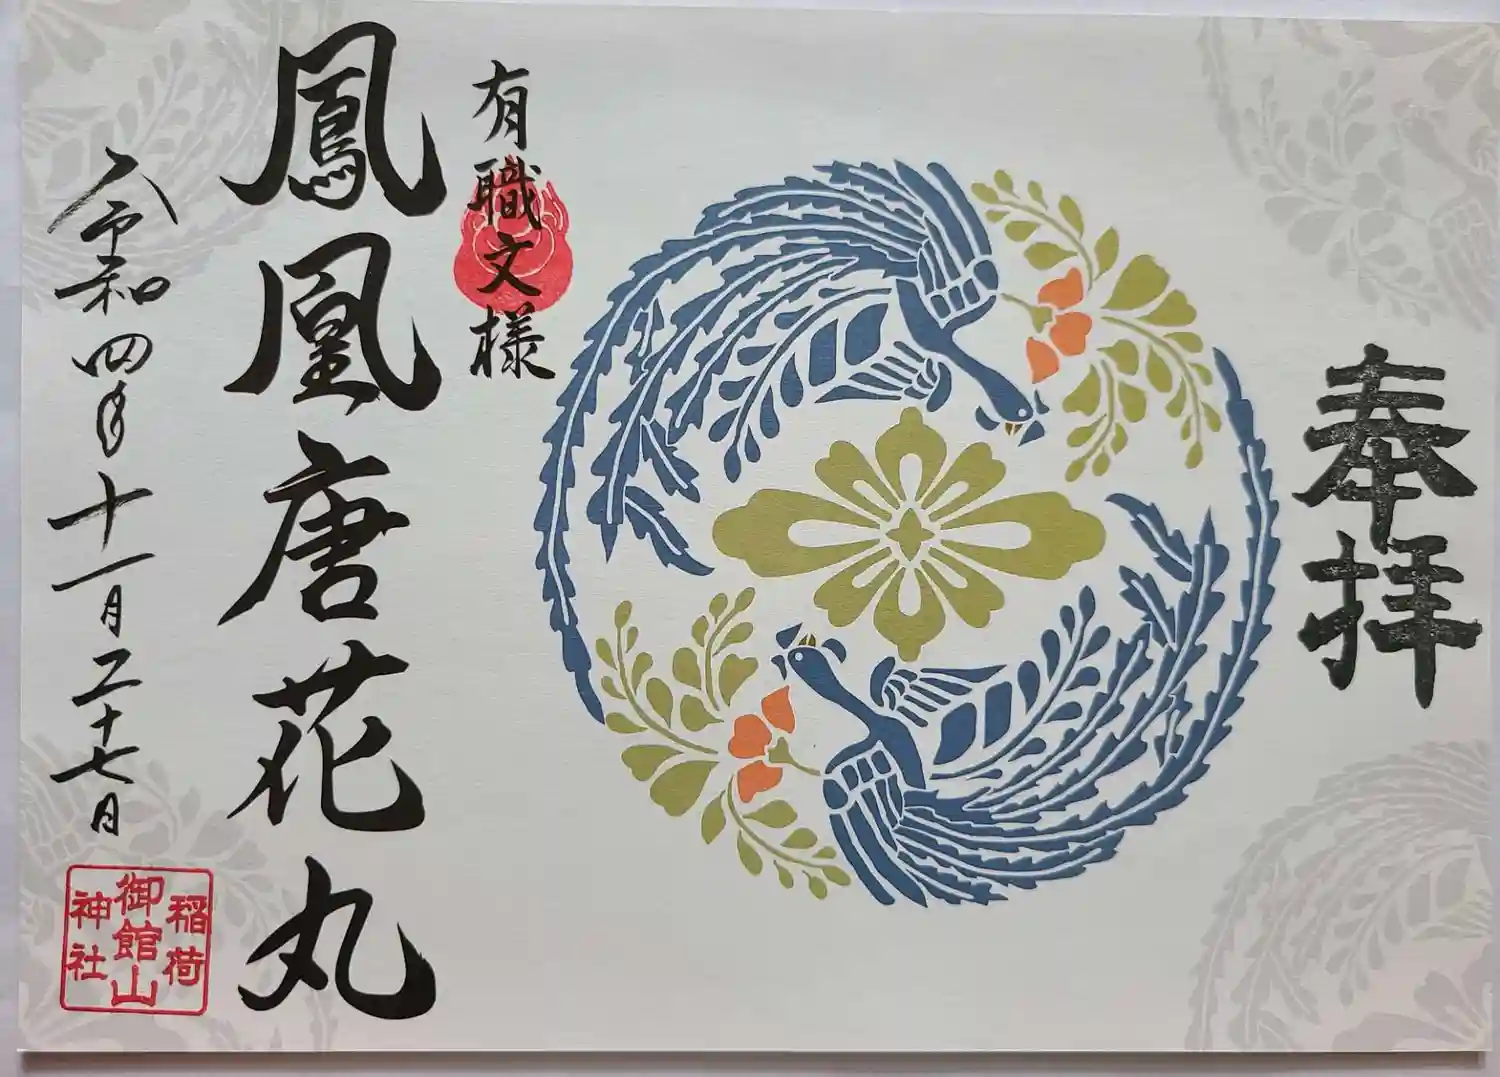 奉拝
有職文様
鳳凰唐花丸
令和四年十一月二十七日
稲荷
御館山
神社